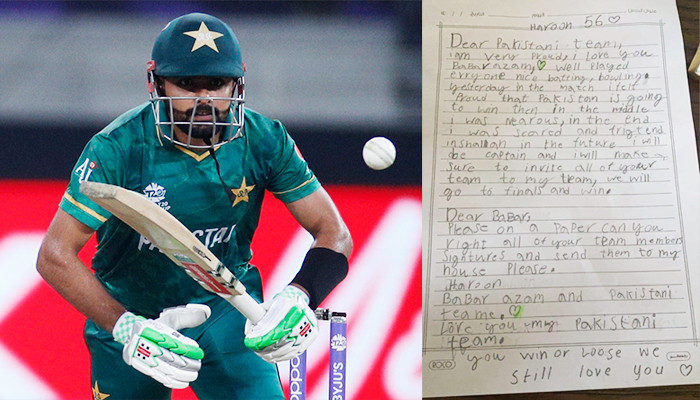 A1
T20
PAKISTAN
BYJU'S
HAROON 56
Dear Pakistani team,
i am very Proud, I love you
BaBar azam, well Played
erryone nice batting, bowling.
yesterday in the match i felt
Proud that Pakistan is going
to win then in the middle
I was nearous, in the end
I was scared and frigtend
inshallah in the future I will
be captain and I will make
sure to invite all of your
team to my team, we will
go to finals and win.
Dear BaBar,
Please on a Paper can you
right all of your team members
signtures and send them to my
house Please.
Haroon
BaBar azam and Pakistani
teame.
Love you my Pakistani
team.
you win or loose we
still love you
XOXO